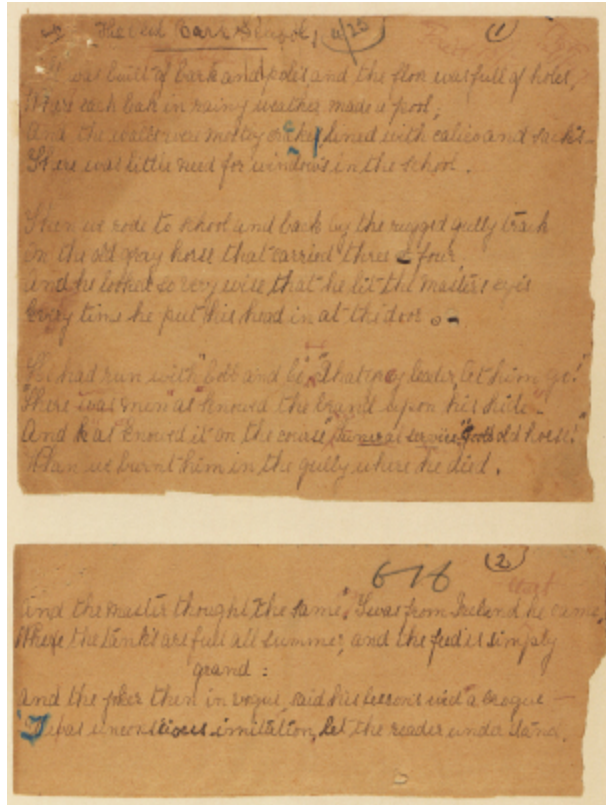 The Old Bark School (1)
It was built of bark and poles and the floor was full of holes,
Where each leak in rainy weather made a pool,
And the walls were mostly cracks lined with calico and sacks –
There was little need for windows in the school.
Then we rode to school and back by the rugged gully track
on the old gray horse that carried three & four
and he looked so very wise that he lit the master's eyes
Every time he put his head in at the door.
He had run with "Cobb and Co" "That grey leader let him go!"
"There was men "as knowed the brand upon his hide"
And "as knowed it on the course" funeral service "good old horse!"
When we burnt him in the gully where he died.
(2)
676
and the master thought the same, 'Twas from Ireland he came,
Where the tanks are full all summer, and the feed is simply
grand:
and the joker then in vogue, said his lessons wid a brogue –
'Twas unconscious imitation, let the reader understand.